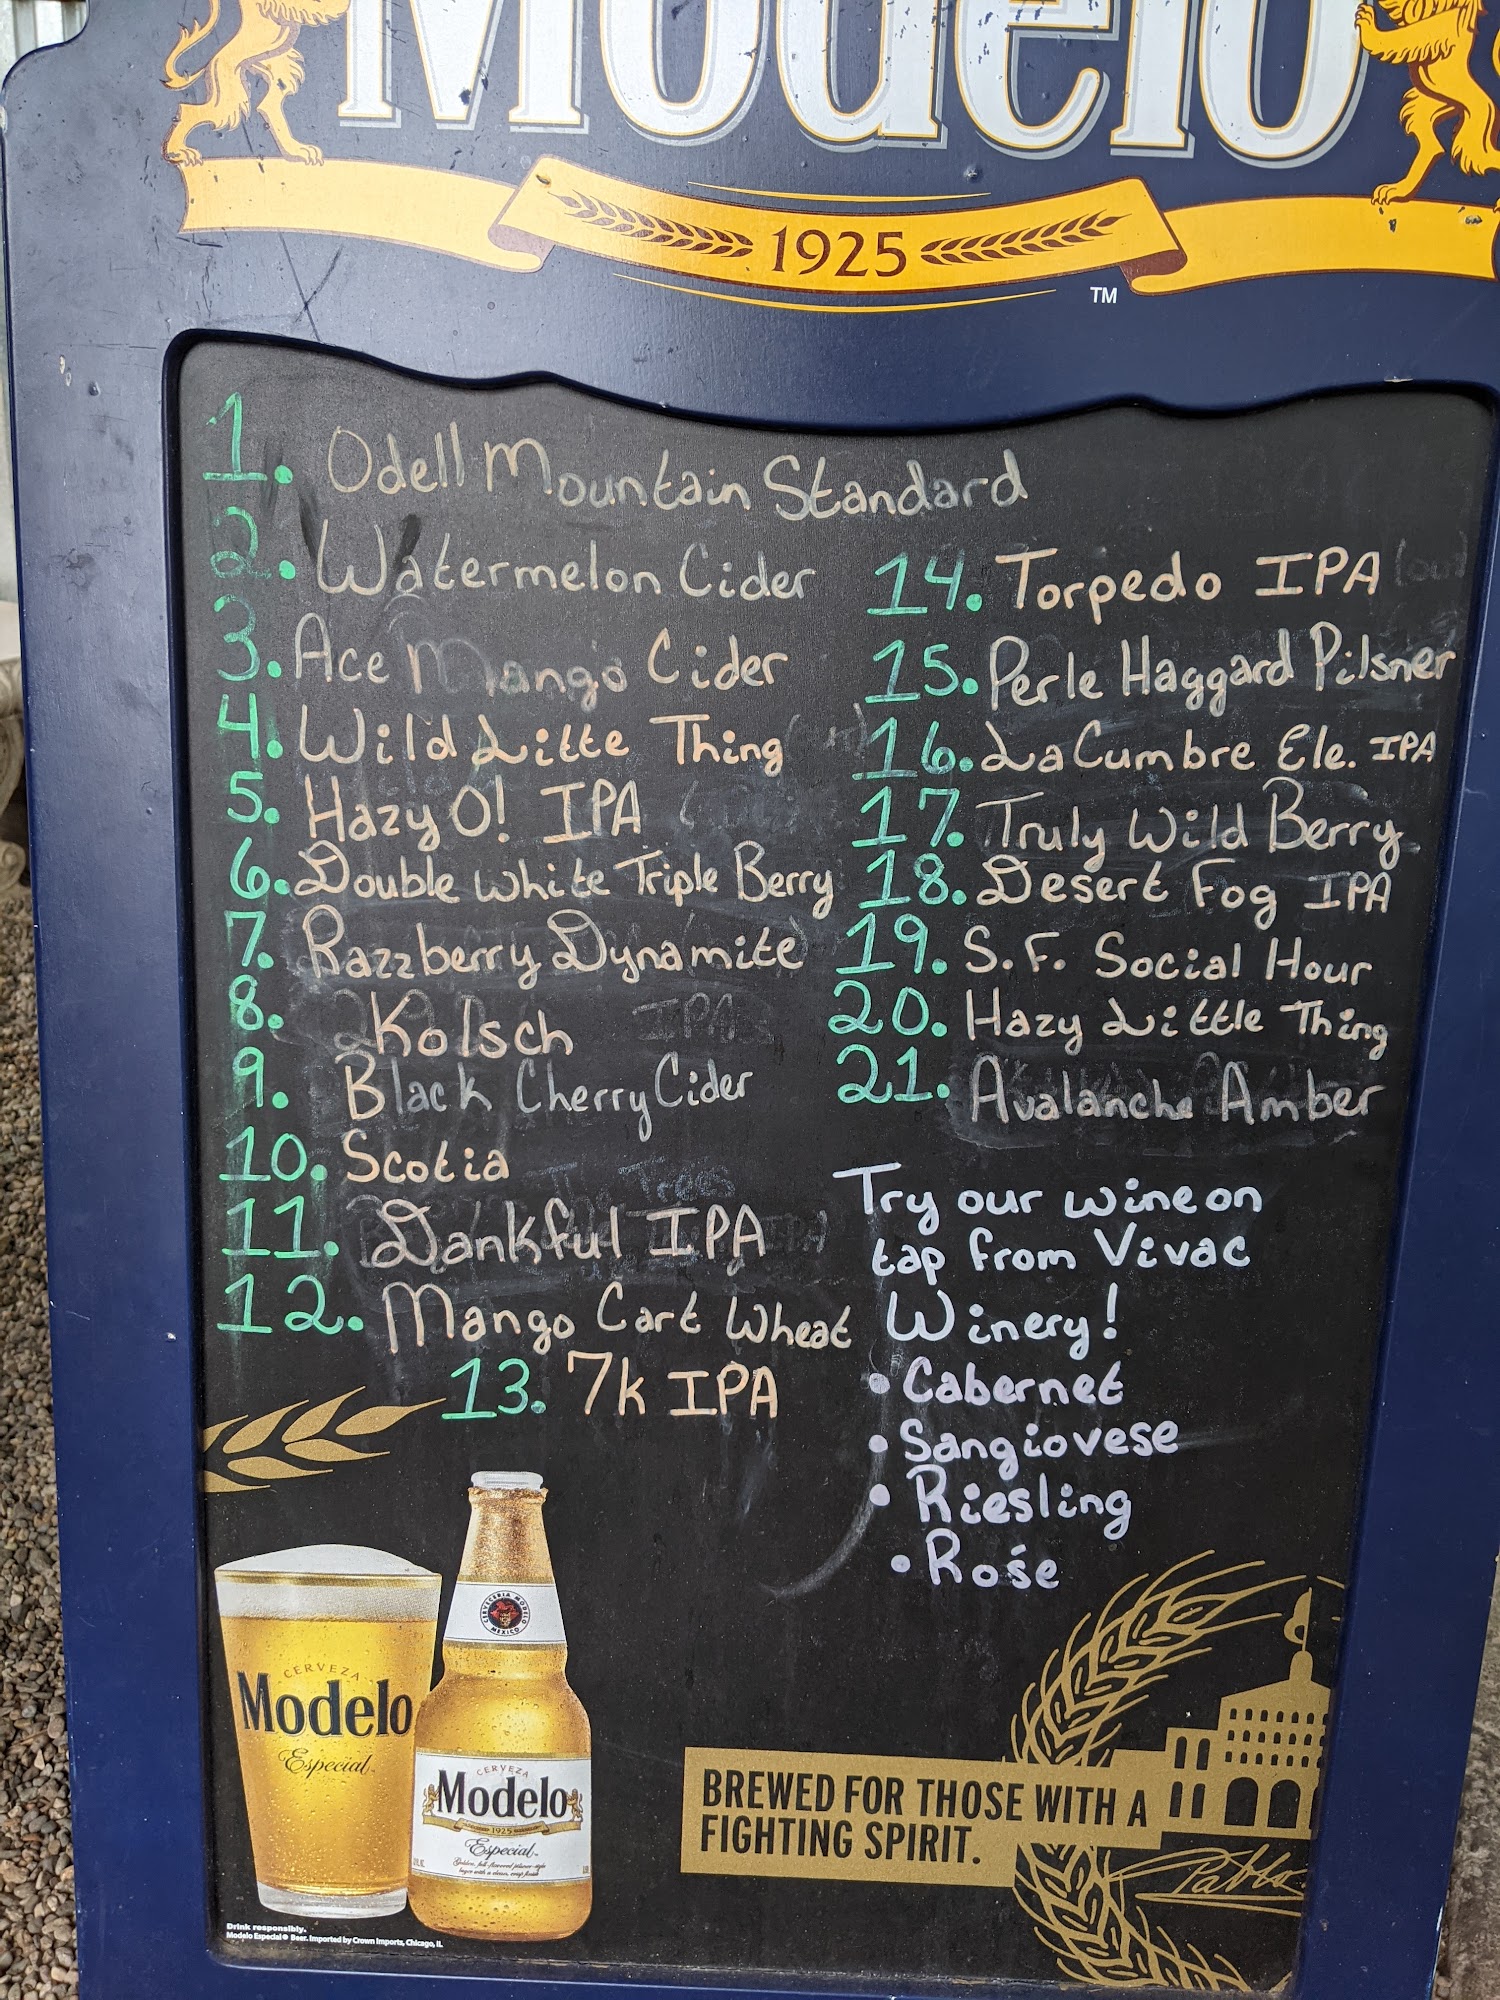 Modelo
1925
TM
1. Odell Mountain Standard
2. Watermelon Cider
3. Ace Mango Cider
4. Wild Litte Thing
5. Hazy O! IPA
6. Double White Triple Berry
7. Razzberry Dynamite
8. Kolsch
9. Black Cherry Cider
10. Scotia
11. Dankful IPA
12. Mango Cart Wheat
13. 7k IPA
14. Torpedo IPA
15. Perle Haggard Pilsner
16. La Cumbre Ele. IPA
17. Truly Wild Berry
18. Desert Fog IPA
19. S.F. Social Hour
20. Hazy Little Thing
21. Avalanche Amber
Try our wine on
tap from Vivac
Winery!
• Cabernet
• Sangiovese
• Riesling
• Rośe
CERVEZA
Modelo
Especial
CERVECERIA MODELO
MEXICO
CERVEZA
Modelo
1925
Especial
BREWED FOR THOSE WITH A
FIGHTING SPIRIT.
Drink responsibly.
Modelo Especial® Beer. Imported by Crown Imports, Chicago, IL